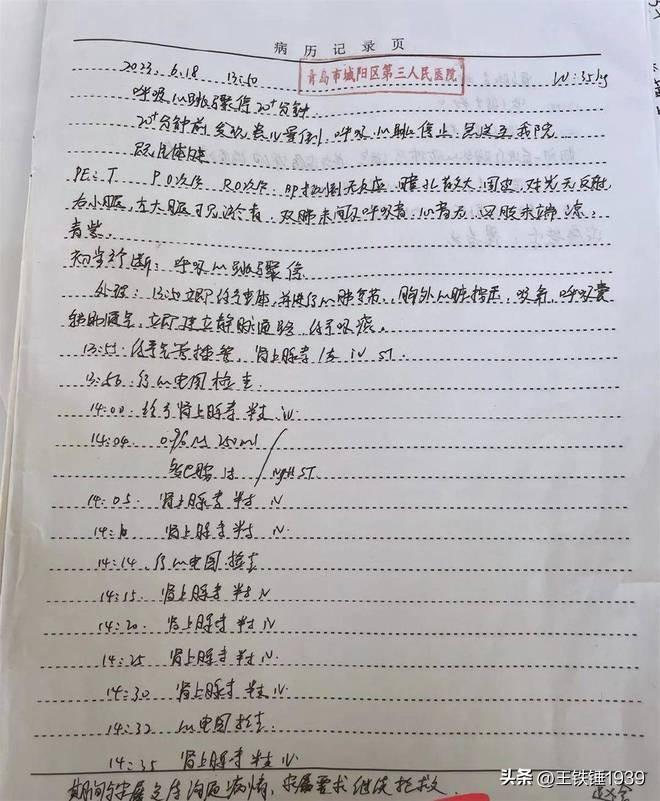 病历记录页
2023.6.18 13:50 青岛市城阳区第三人民医院 W:35kg
呼吸心跳骤停20+分钟
20+分钟前发现患儿晕倒,呼吸心跳停止,急送至我院
既往体健
PE:T P 0次/分 R 0次/分 BP 测不到 无反应,瞳孔散大,固定,对光无反射,
右小腿,左大腿可见 青,双肺未闻及呼吸音,心音无,四肢末端凉,
青紫。
初步诊断:呼吸心跳骤停
处理:13:50立即 并进行心肺复苏,胸外心脏按压,吸氧,呼吸囊
辅助通气,立即建立静脉通路,
13:51. 气管插管,肾上腺素 1支 iv ST.
13:56. 行心电图检查.
14:00. 给予肾上腺素 半支 iv
14:04. 0.9% NS 250ml
多巴胺 ivgtt ST.
14:05. 肾上腺素 半支 iv
14:10 肾上腺素 半支 iv.
14:14. 行心电图检查
14:15. 肾上腺素 半支 iv
14:20. 肾上腺素 半支 iv
14:25 肾上腺素 半支 iv.
14:30 肾上腺素 半支 iv.
14:32 心电图检查.
14:35 肾上腺素 半支 iv
期间与家属交待沟通病情,家属要求继续抢救.
头条 @王铁锤1939